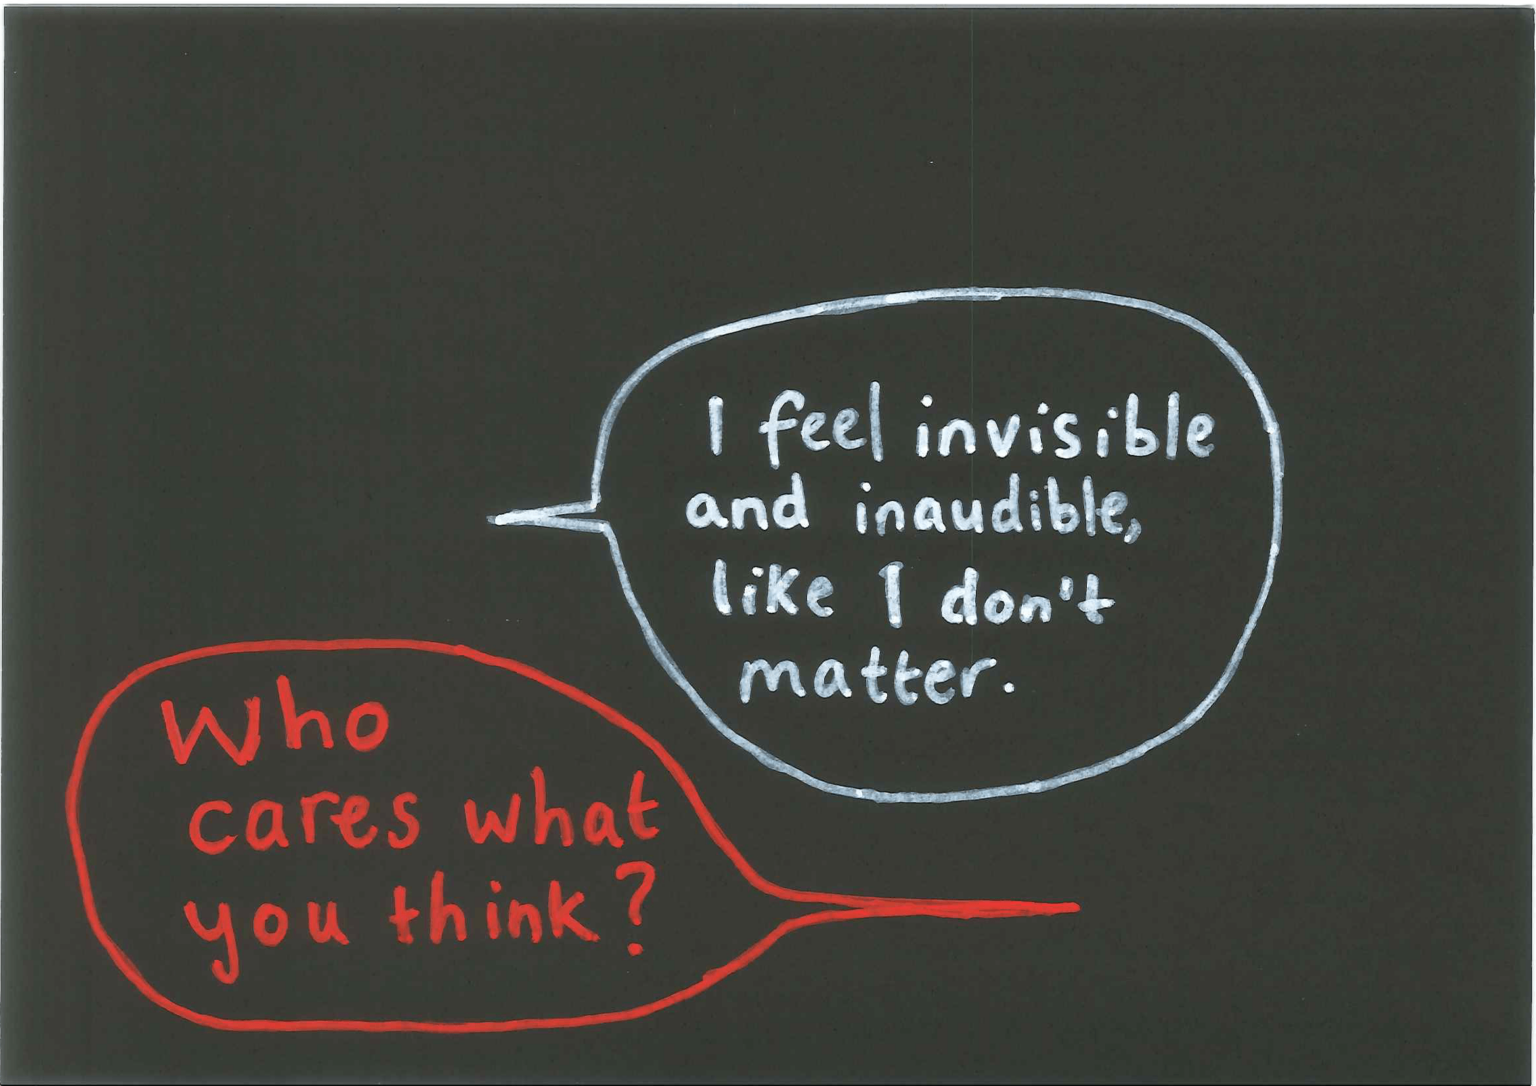 I feel invisible
and inaudible,
like I don't
matter.
Who
cares what
you think?